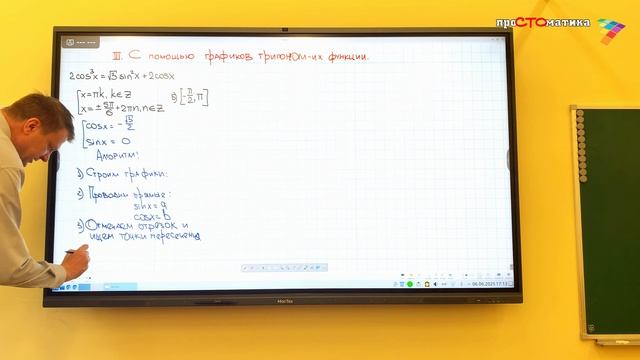 проСТОматика
III. С помощью графиков тригоном-их функции.
2cos³x = √3 sin²x + 2cosx
[x = πk, k∈Z
x = ± 5π/6 + 2πn, n∈Z
б) [-π/2; π]
[cosx = -√3/2
sinx = 0
Алгоритм:
1) Строим графики:
2) Проводим прямые:
sinx = a
cosx = b
3) Отмечаем отрезок и
ищем точки пересечения
06.06.2025 17:13